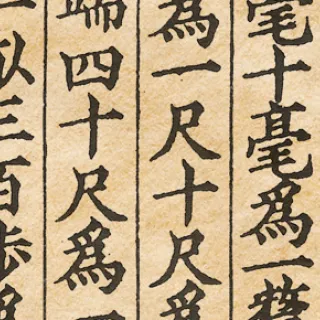 毫十毫爲一
爲一尺十尺爲
端四十尺爲一
三百步